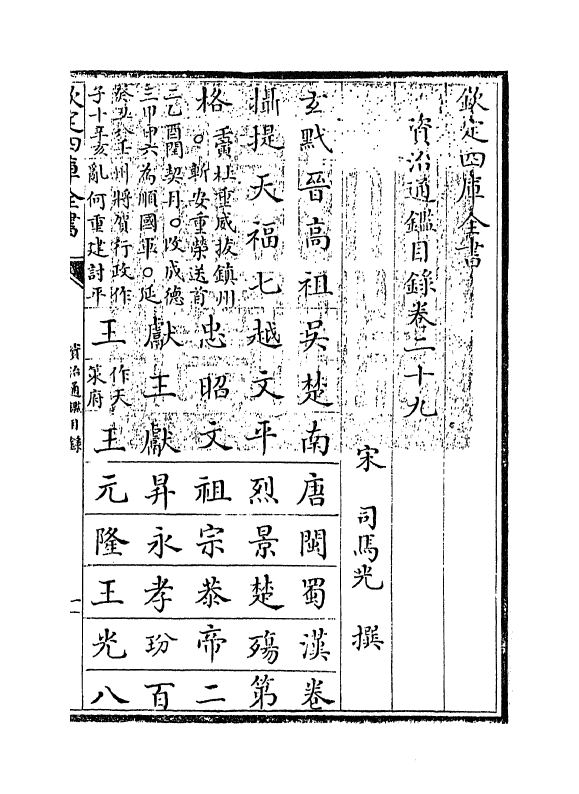 欽定四庫全書
資治通鑑目錄卷二十九
宋 司馬光 撰
玄黓晉高祖吳楚南唐閩蜀漢卷
攝提天福七越文平烈景楚殤第
格 壬寅杜重威拔鎮州
○斬安重榮送首 忠昭文祖宗恭帝二
二乙酉閏契丹○改成德
三甲申六為順國軍○延 獻王獻昇永孝玢百
癸丑 壬州將賀行政作
子十辛亥亂何重建討平 王 作天
策府 王元隆王光八
欽定四庫全書 資治通鑑目錄 一